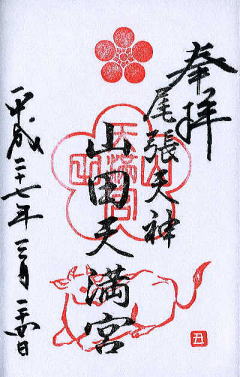 奉拝
尾張天神
山田天満宮
平成二十七年三月二十四日
天満宮
丑